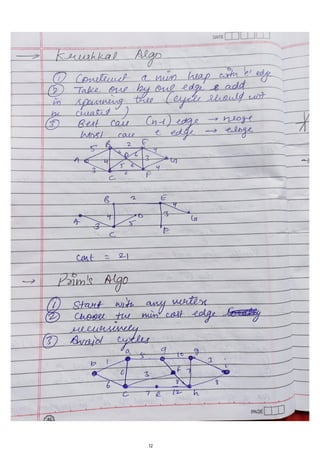 DATE
→ Krushkal Algo
① Construct a min heap with 'e' edge
② Take one by one edge & add
in spanning tree (cycle should not
be created)
③ Best case (n-1) edge → nloge
worst case e edge → eloge
B 2 E
5 4
A 4 D 3 G
3 5 4
C F
B 2 E
4
A 4 D 3 G
3 5
C F
Cost = 21
→ Prim's Algo
① Start with any vertex
② Choose the min cost edge
recursively
③ Avoid cycles
a 5 d 10 g
b 1 3 i
6 3 f 7
6 8 8
c 7 e 12 h
PAGE
12